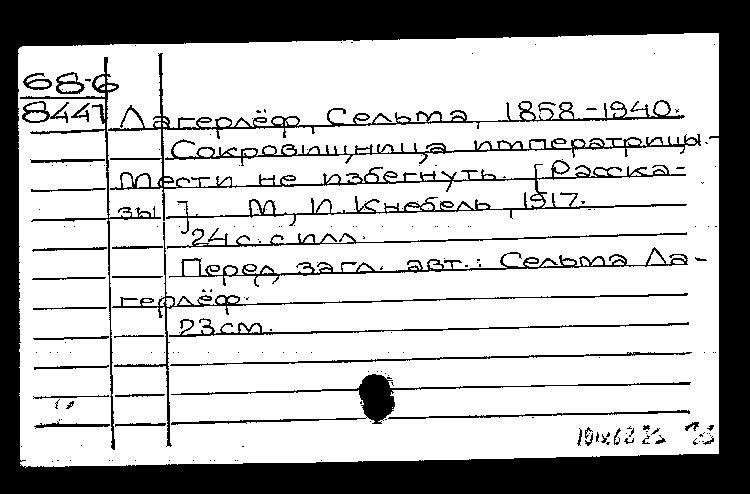 68-6
8447
Лагерлёф, Сельма, 1858-1940.
Сокровищница императрицы.-
Мести не избегнуть. [Расска-
зы]. М., И. Кнебель, 1917.
24 с. с илл.
Перед загл. авт.: Сельма Ла-
герлёф.
23 см.